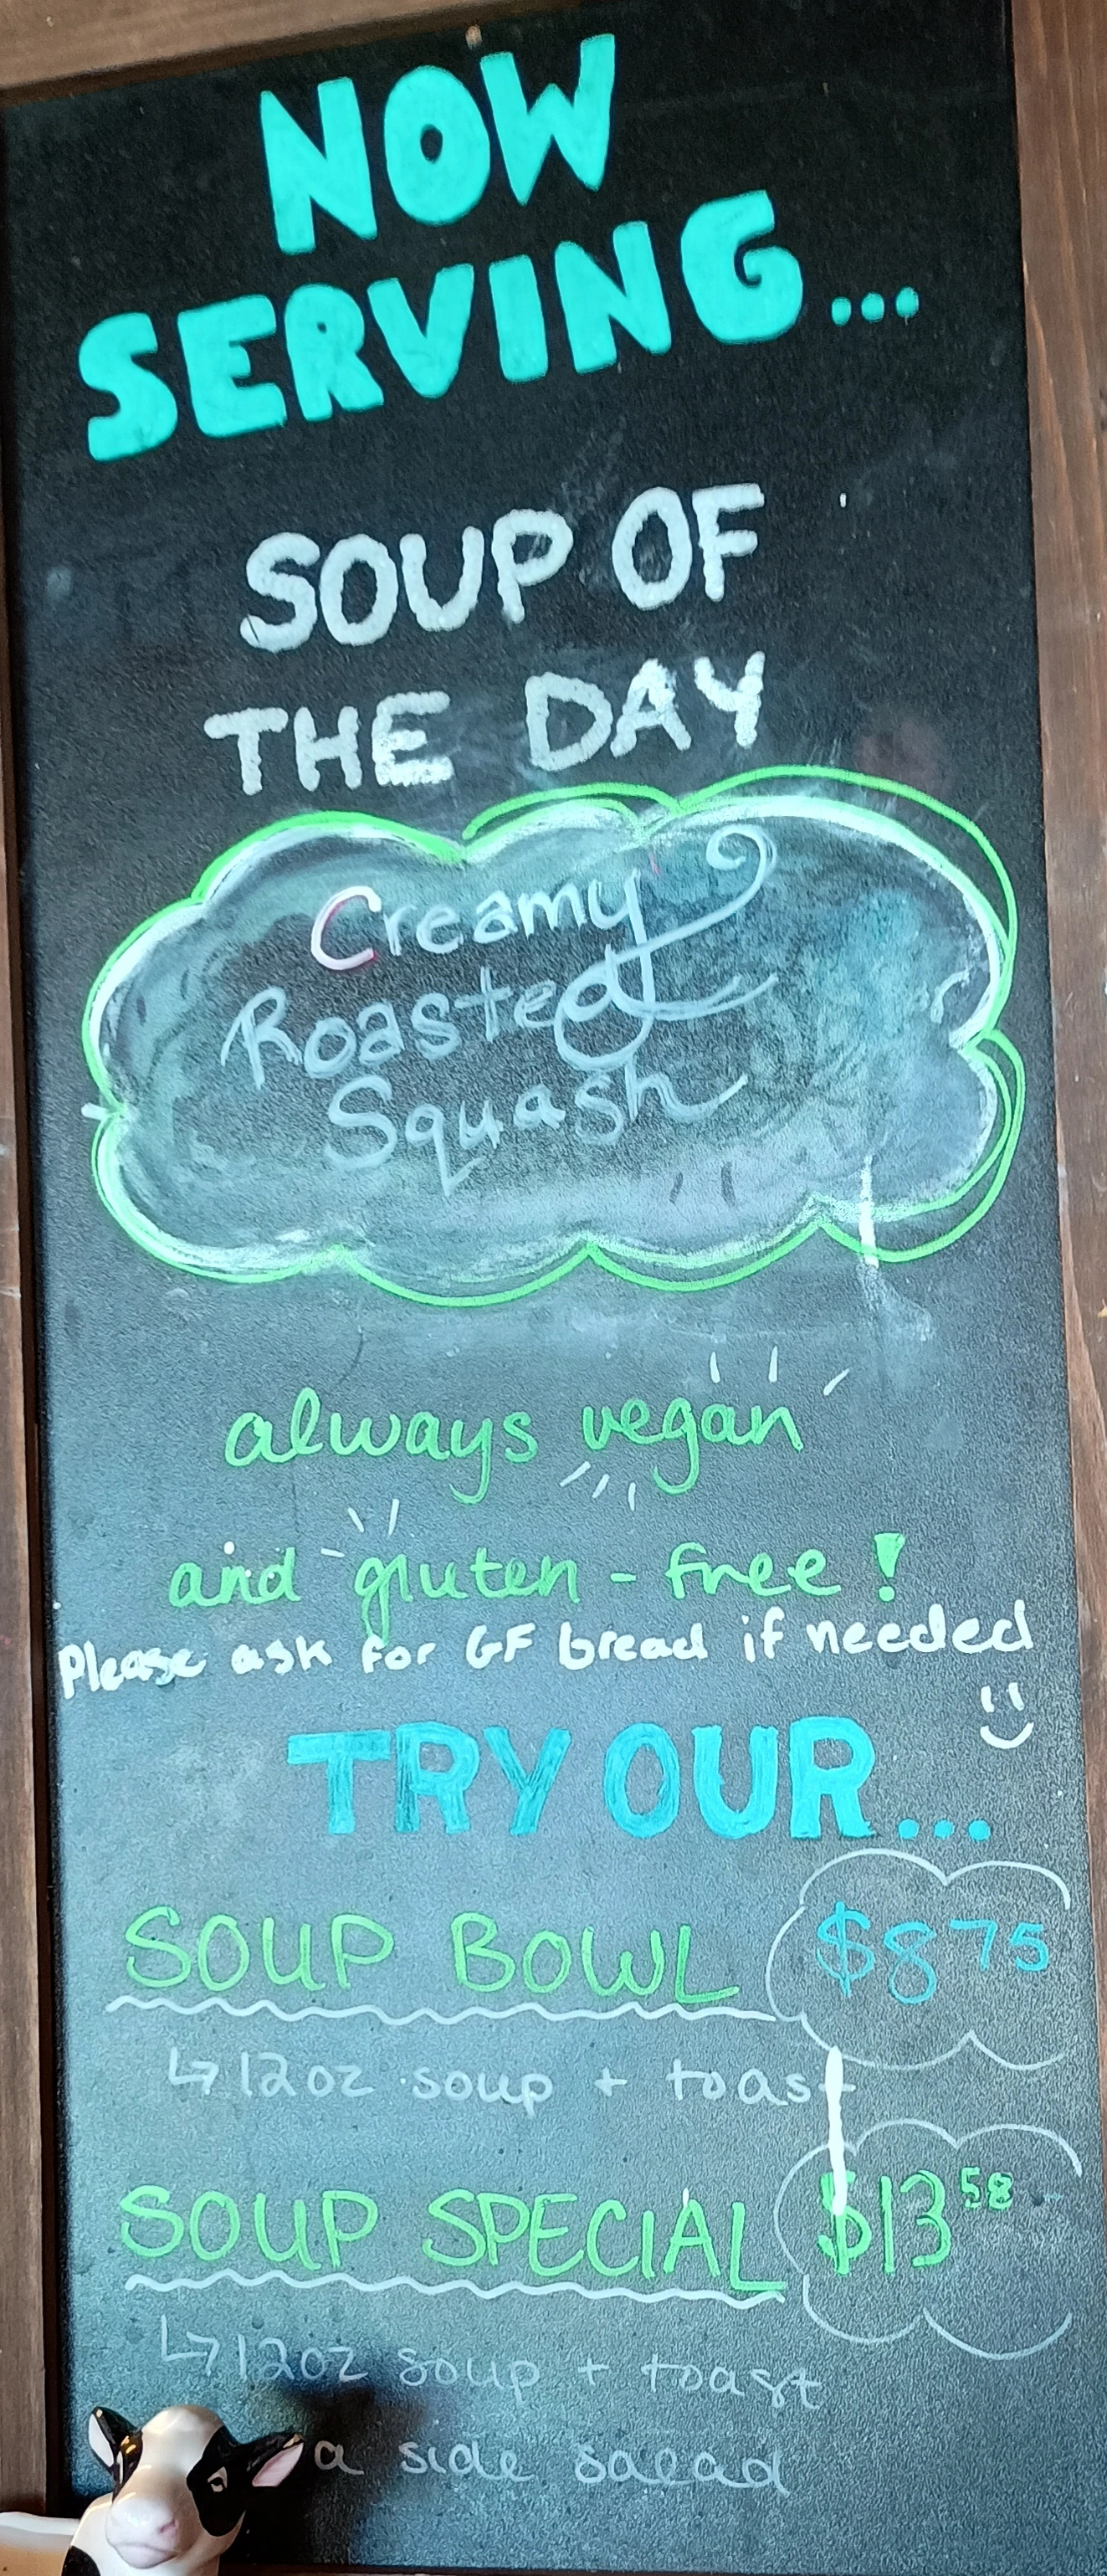 NOW
SERVING...
SOUP OF
THE DAY
Creamy
Roasted
Squash
always vegan
and gluten-free!
Please ask for GF bread if needed
TRY OUR...
SOUP BOWL $8 75
↳ 12oz soup + toast
SOUP SPECIAL $13 58
↳ 12oz soup + toast
a side salad